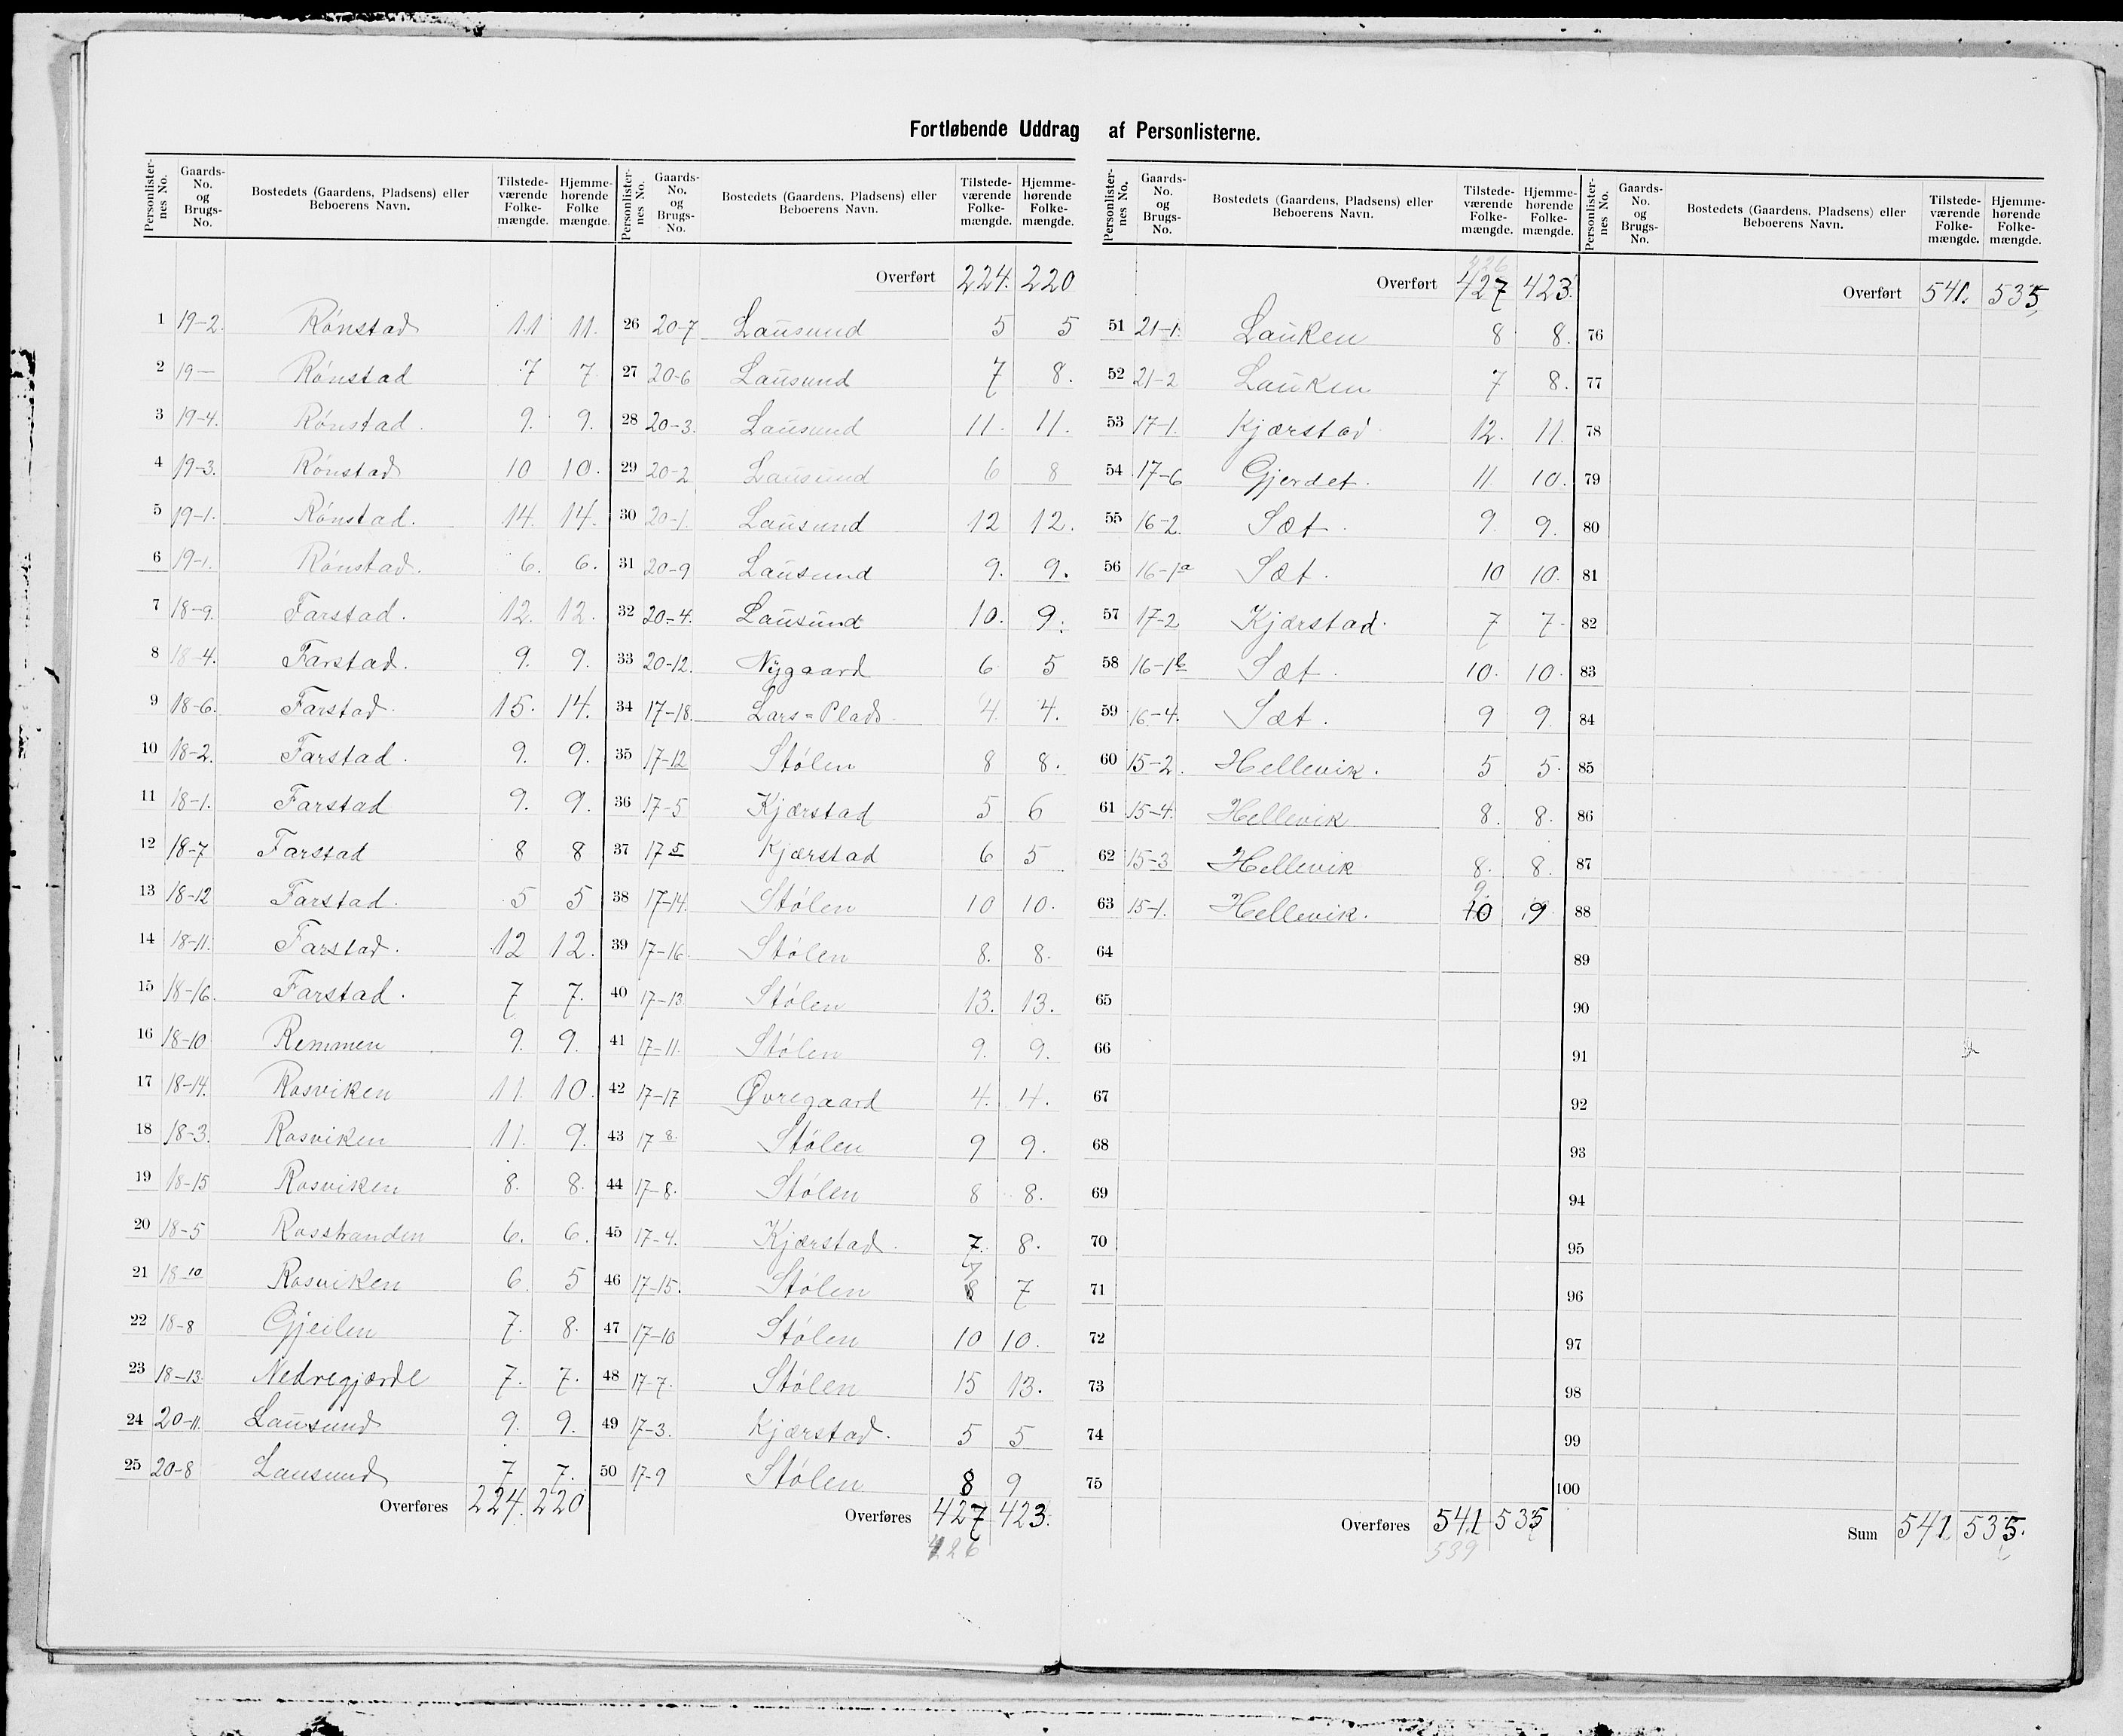 Fortløbende Uddrag af Personlisterne.
Personlister-nes No. Gaards-No. og Brugs-No. Bostedets (Gaardens, Pladsens) eller Beboerens Navn. Tilstede-værende Folke-mængde. Hjemme-hørende Folke mængde.
1 19-2. Rónstad 11 11.
2 19— Rónstad 7 7
3 19-4. Rónstad. 9. 9.
4 19-3. Rónstad 10 10.
5 19-1. Rónstad. 14. 14.
6 19-1. Rónstad. 6. 6.
7 18-9. Farstad. 12. 12.
8 18-4. Farstad. 9. 9.
9 18-6. Farstad. 15. 14.
10 18-2. Farstad. 9. 9.
11 18-1. Farstad 9. 9.
12 18-7 Farstad 8 8
13 18-12 Farstad. 5 5
14 18-11. Farstad. 12 12.
15 18-16. Farstad. 7 7.
16 18-10 Remmen 9. 9.
17 18-14. Rosviken 11. 10.
18 18-3. Rosviken 11. 9.
19 18-15 Rosviken 8. 8.
20 18-5 Rosstranden 6. 6.
21 18-10 Rosviken 6. 5
22 18-8 Gjeilen 7. 8.
23 18-13. Nedregjærde 7. 7.
24 20-11. Lausund 9. 9.
25 20-8 Lausund 7 7.
Overføres 224. 220
Personlister-nes No. Gaards-No. og Brugs-No. Bostedets (Gaardens, Pladsens) eller Beboerens Navn. Tilstede-værende Folke-mængde. Hjemme-hørende Folke-mængde.
Overført 224. 220
26 20-7 Lausund 5 5
27 20-6 Lausund 7 8.
28 20-3. Lausund 11. 11.
29 20-2 Lausund 6 8
30 20-1. Lausund 12 12.
31 20-9 Lausund 9. 9.
32 20-4. Lausund 10. 9.
33 20-12. Nygaard 6 5
34 17-18. Lars=Plads. 4. 4.
35 17-12 Stólen 8 8.
36 17-5 Kjærstad 5 6
37 17 5 Kjærstad 6 5
38 17-14. Stólen 10 10.
39 17-16. Stólen 8. 8.
40 17-13 Stólen 13. 13.
41 17-11. Stólen 9. 9.
42 17-17 Øvregaard 4. 4.
43 17 8. Stólen 9 9.
44 17-8. Stólen 8 8.
45 17-4. Kjærstad. 7. 8.
46 17-15. Stólen 7 8 7
47 17-10 Stólen 10 10.
48 17-7. Stólen 15 13.
49 17-3. Kjærstad. 5 5
50 17-9 Stólen 8 9
Overføres 427 423.
426
Personlister-nes No. Gaards-No. og Brugs-No. Bostedets (Gaardens, Pladsens) eller Beboerens Navn. Tilstede-værende Folke-mængde. Hjemme-hørende Folke-mængde.
426
Overført 427 423.
51 21-1. Lauken 8 8.
52 21-2 Lauken 7 8.
53 17-1. Kjærstad 12. 11.
54 17-6 Gjerdet. 11 10.
55 16-2. Sæt. 9. 9.
56 16-1a Sæt. 10 10.
57 17-2 Kjærstad. 7 7.
58 16-1b Sæt. 10. 10.
59 16-4. Sæt. 9 9.
60 15-2. Hellevik. 5 5.
61 15-4. Hellevik 8. 8.
62 15-3 Hellevik 8. 8.
63 15-1. Hellevik. 9. 10 9
64
65
66
67
68
69
70
71
72
73
74
75
Overføres 541 535
539
Personlister-nes No. Gaards-No. og Brugs-No. Bostedets (Gaardens, Pladsens) eller Beboerens Navn. Tilstede-værende Folke-mængde. Hjemme-hørende Folke-mængde.
Overført 541. 535
76
77
78
79
80
81
82
83
84
85
86
87
88
89
90
91
92
93
94
95
96
97
98
99
100
Sum 541 535.